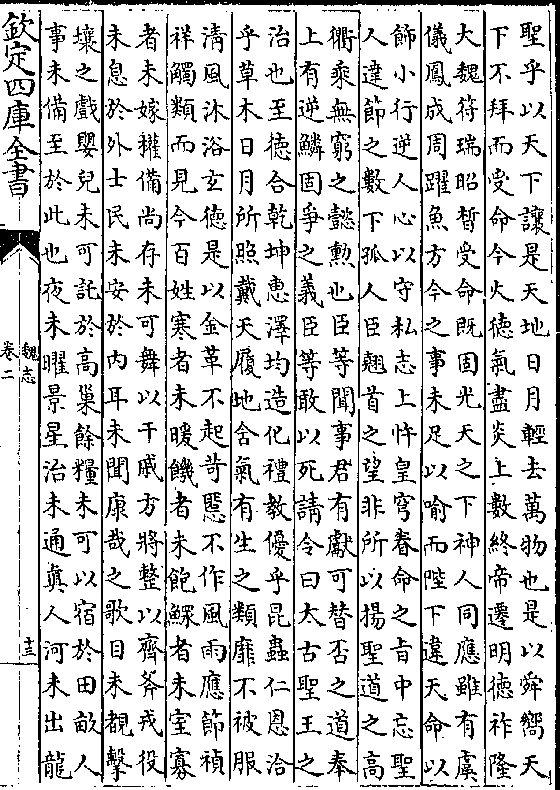 聖乎以天下讓是天地日月輕去萬物也是以舜嚮天
下不拜而受命今火德氣盡炎上數終帝遷明德祚隆
大魏符瑞昭晳受命既固光天之下神人同應雖有虞
儀鳳成周躍魚方今之事未足以喻而陛下違天命以
飾小行逆人心以守私志上忤皇穹眷命之旨中忘聖
人達節之數下孤人臣翹首之望非所以揚聖道之高
衢乘無窮之懿勲也臣等聞事君有獻可替否之道奉
上有逆鱗固爭之義臣等敢以死請令曰大古聖王之
治也至德合乾坤惠澤均造化禮教優乎昆蟲仁恩洽
乎草木日月所照戴天履地含氣有生之類靡不被服
清風沐浴玄德是以金革不起苛慝不作風雨應節禎
祥觸類而見今百姓寒者未暖饑者未飽鰥者未室寡
者未嫁權備尚存未可舞以干戚方將整以齊斧戎役
未息於外士民未安於内耳未聞康哉之歌目未覩擊
壤之戲嬰兒未可託於高巢餘糧未可以宿於田畝人
事未備至於此也夜未曜景星治未通真人河未出龍
欽定四庫全書
魏志
卷二
十三